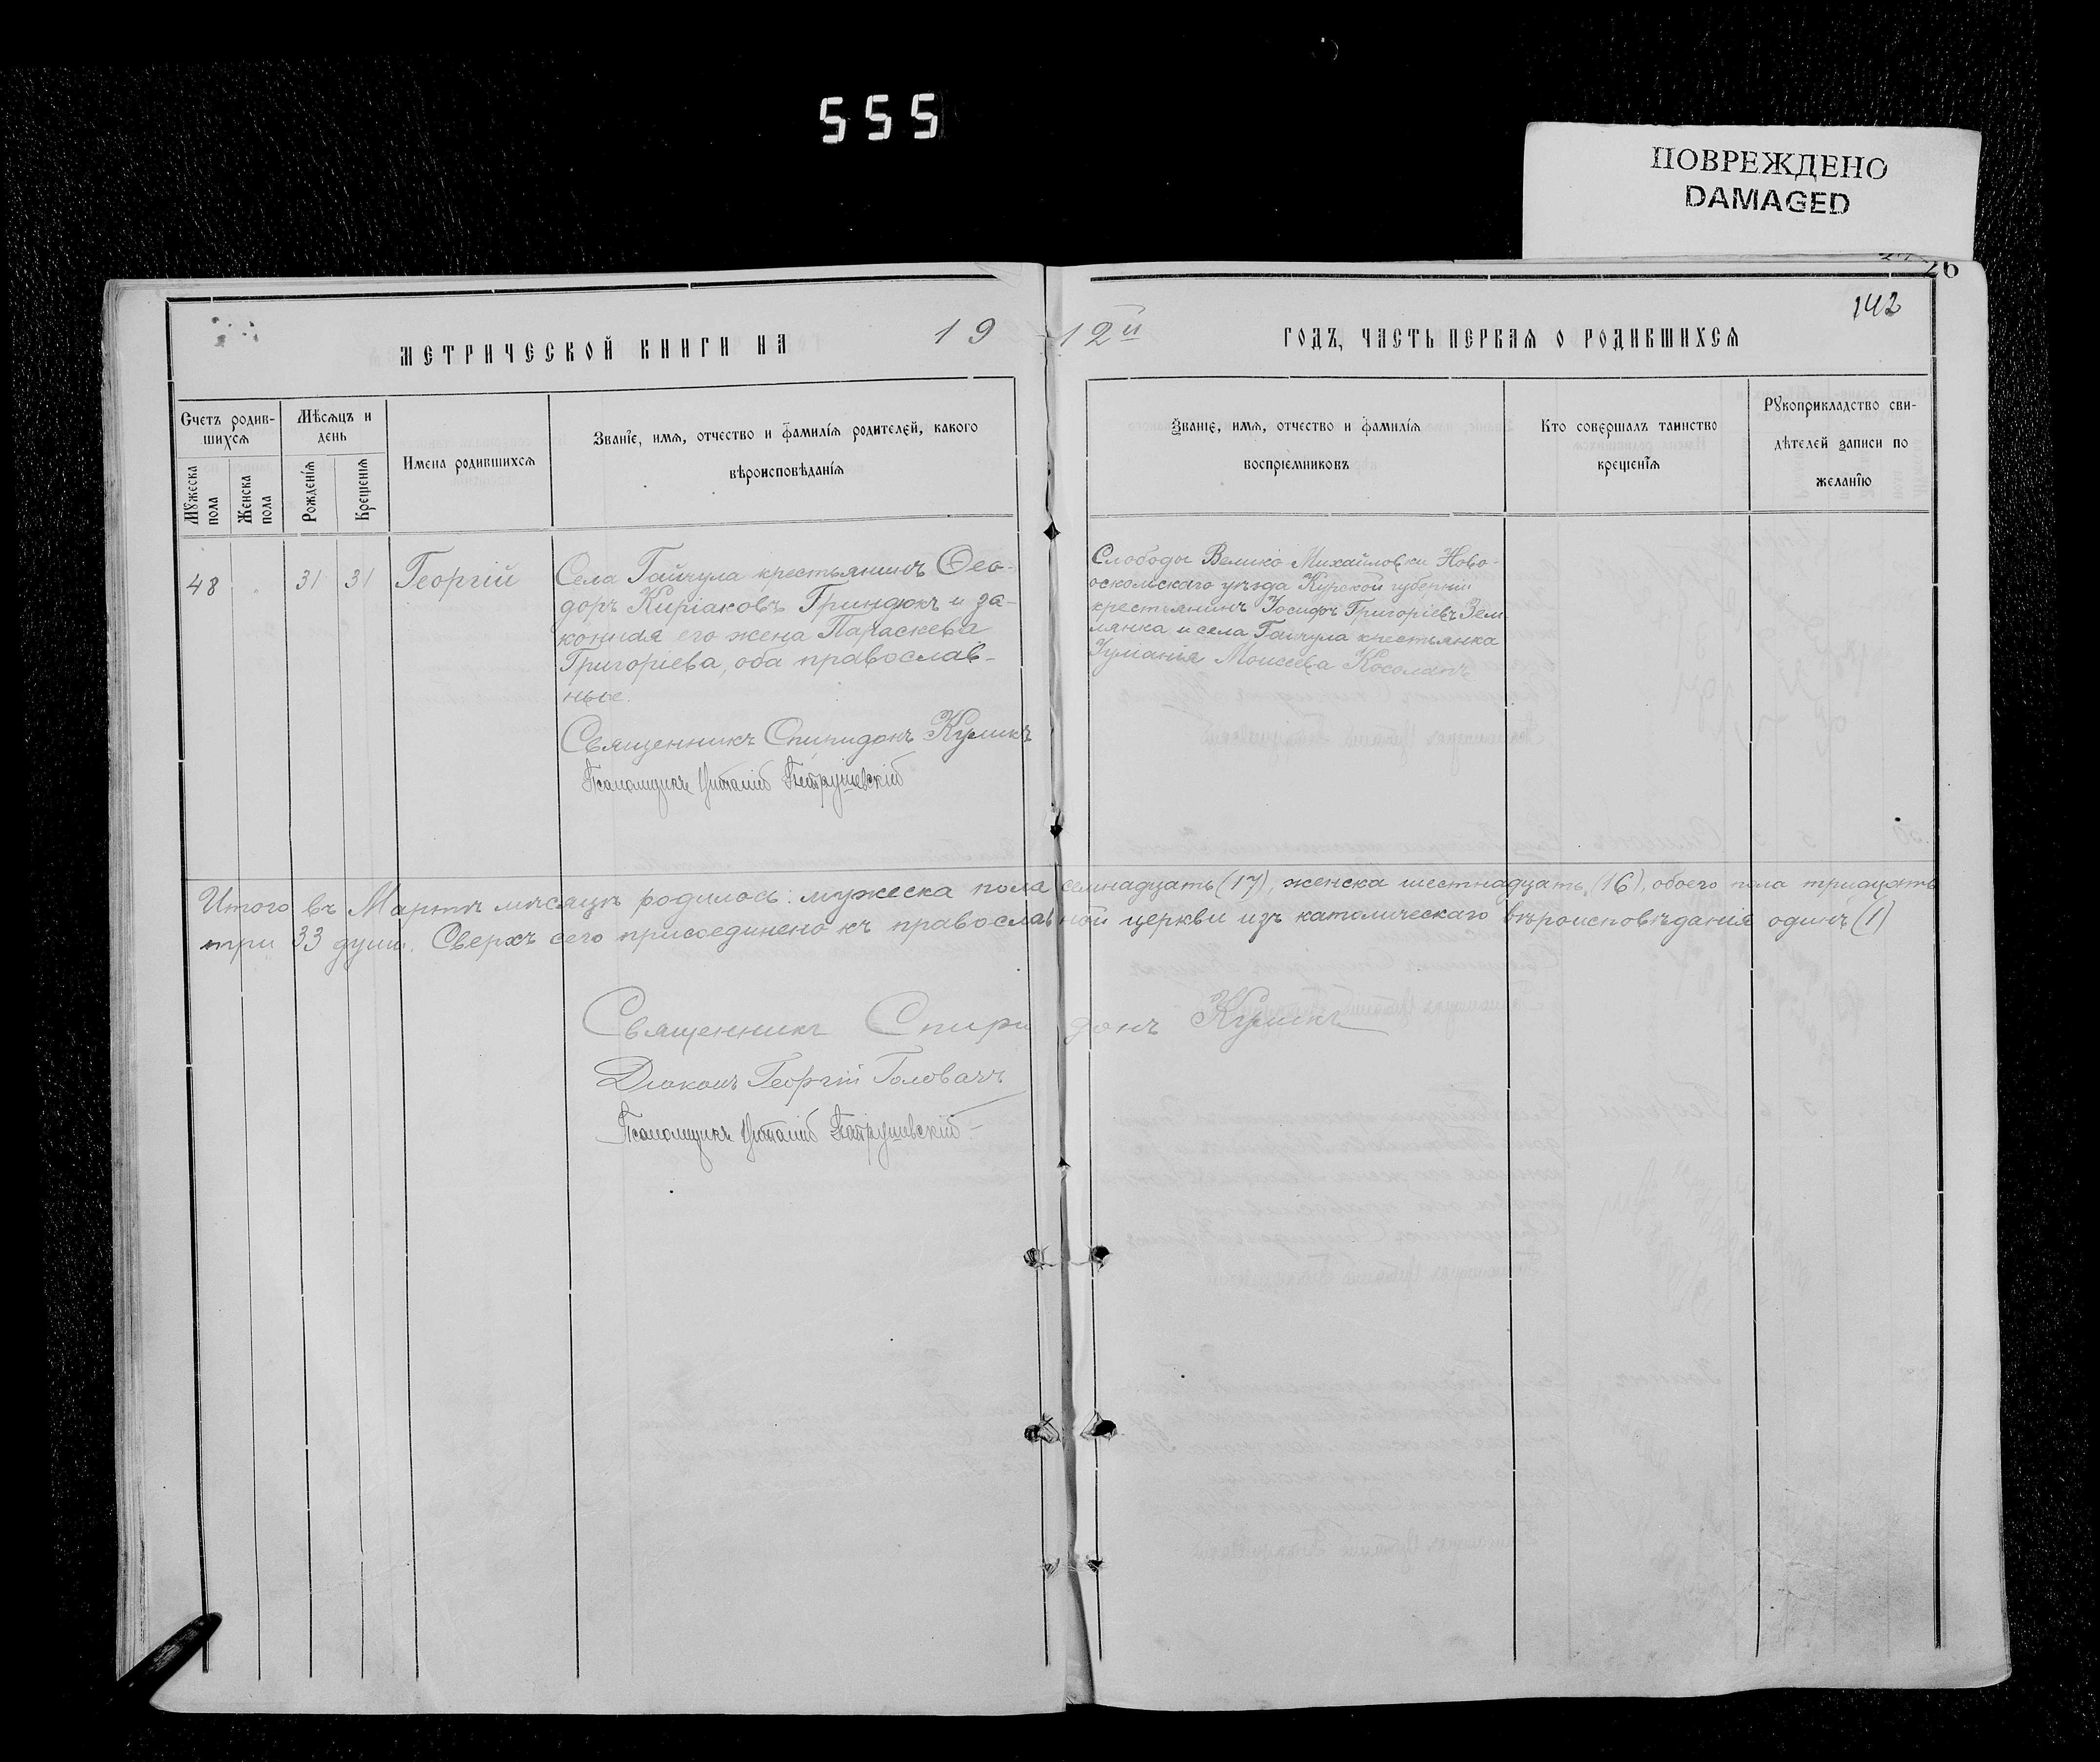 555
ПОВРЕЖДЕНО
DAMAGED
26
142
МЕТРИЧЕСКОЙ КНИГИ НА 19
12й ГОДЪ, ЧАСТЬ ПЕРВАЯ О РОДИВШИХСЯ
Счетъ родив-
шихся
Мужеска
пола
Женска
пола
Мѣсяцъ и
день
Рожденія
Крещенія
Имена родившихся
Званіе, имя, отчество и фамилія родителей, какого
вѣроисповѣданія
Званіе, имя, отчество и фамилія
воспріемниковъ
Кто совершалъ таинство
крещенія
Рукоприкладство сви-
дѣтелей записи по
желанію
48
31
31
Георгій
Села Гайчула крестьянинъ Ѳео-
доръ Киріаковъ Гриндюкъ и за-
конная его жена Параскева
Григоріева, оба православ-
ные.
Священникъ Спиридонъ Куликъ
Псаломщикъ Петрушевскій
Слободы Велико-Михайловки Ново-
оскольскаго уѣзда Курской губерніи
крестьянинъ Іосифъ Григоріевъ Зем
лянка и села Гайчула крестьянка
Моисеева Косолапъ
Итого въ Мартѣ мѣсяцѣ родилось: мужеска пола семнадцать (17), женска шестнадцать (16), обоего пола тридцать
три 33 души. Сверхъ сего присоединено къ православной церкви изъ католическаго вѣроисповѣданія одинъ (1)
Священникъ Спиридонъ Куликъ
Діаконъ Георгій Головачъ
Псаломщикъ Петрушевскій